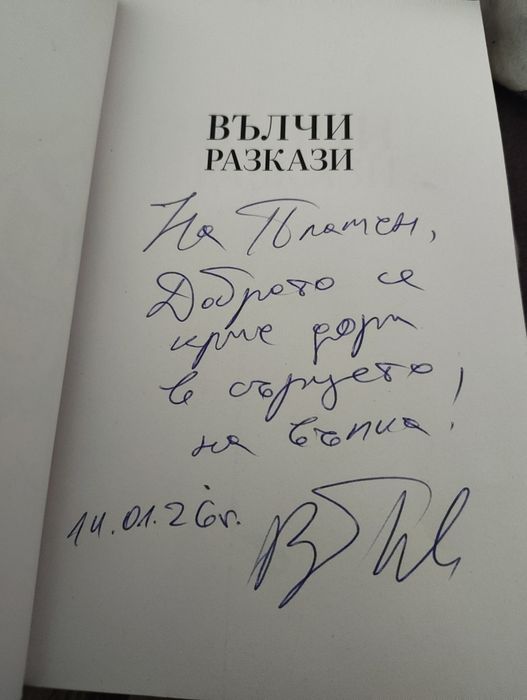 ВЪЛЧИ
РАЗКАЗИ
На Пламен,
Доброто се
крие дори
в сърцето
на вълка!
14.01.26г.